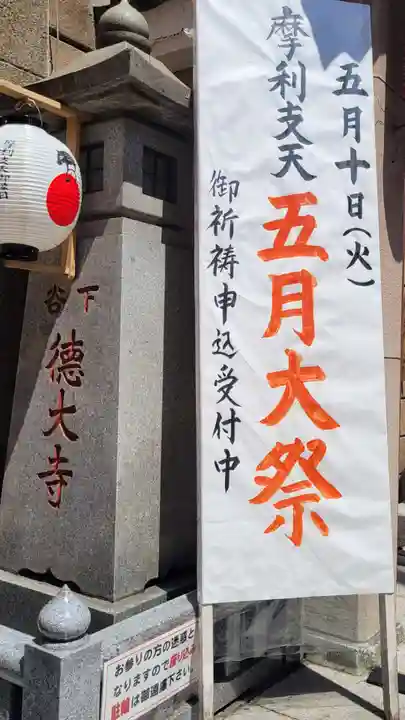 五月十日(火)
摩利支天
五月大祭
御祈祷申込受付中
下谷
徳大寺
お参りの方の迷惑と
なりますので座り込み
駐輪は御遠慮下さい。